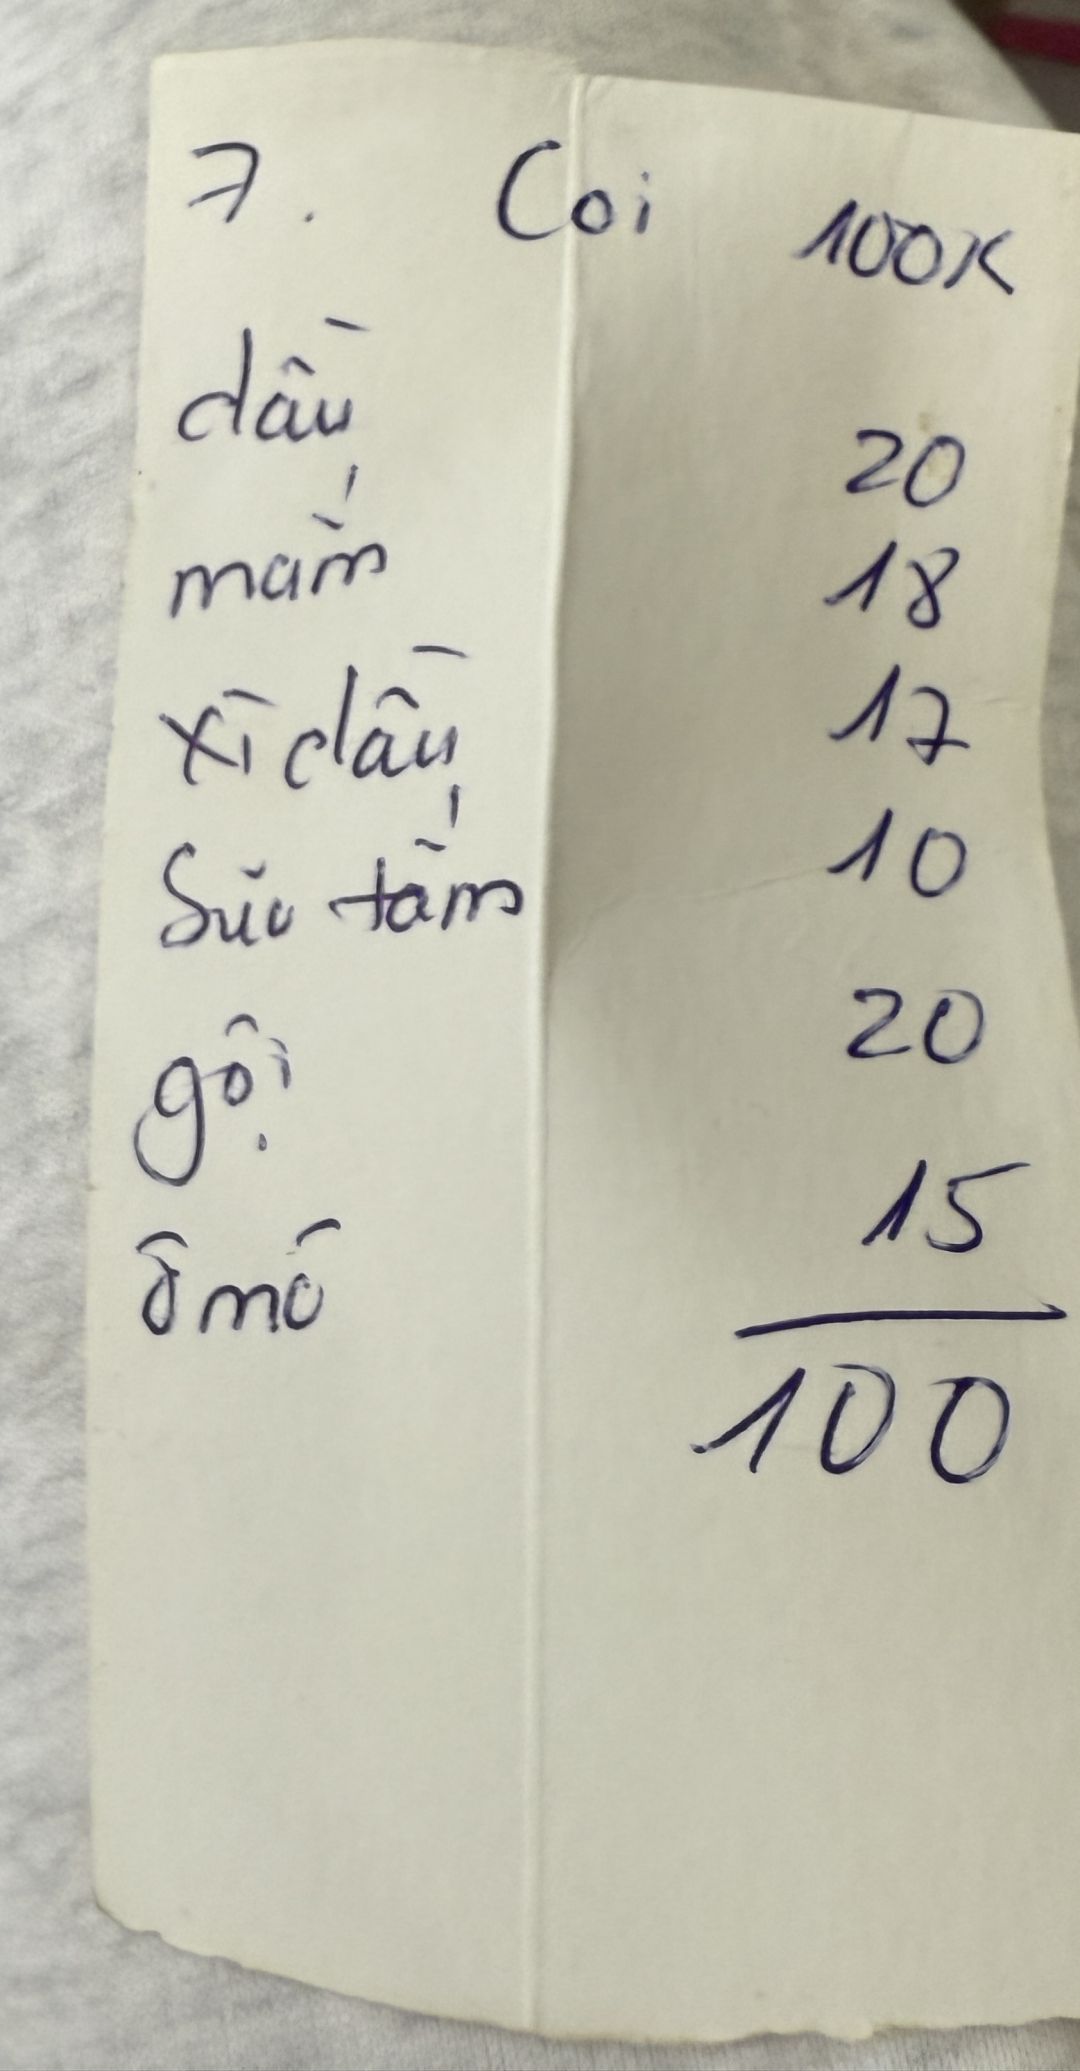 7. Coi 100K
dầu 20
mắm 18
xì dầu 17
Sữa tắm 10
gội 20
ô mô 15
100